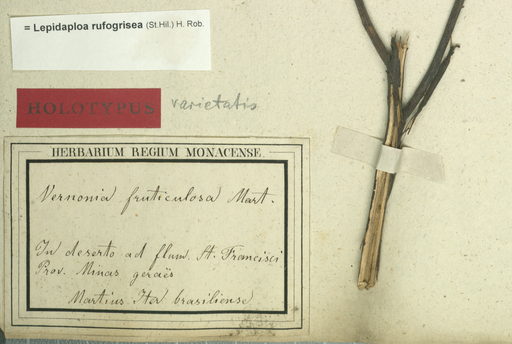 = Lepidaploa rufogrisea (St.Hil.) H. Rob.
HOLOTYPUS varietatis
HERBARIUM REGIUM MONACENSE.
Vernonia fruticulosa Mart.
In deserto ad flum. St. Francisci
Prov. Minas geraës
Martius Iter brasiliense